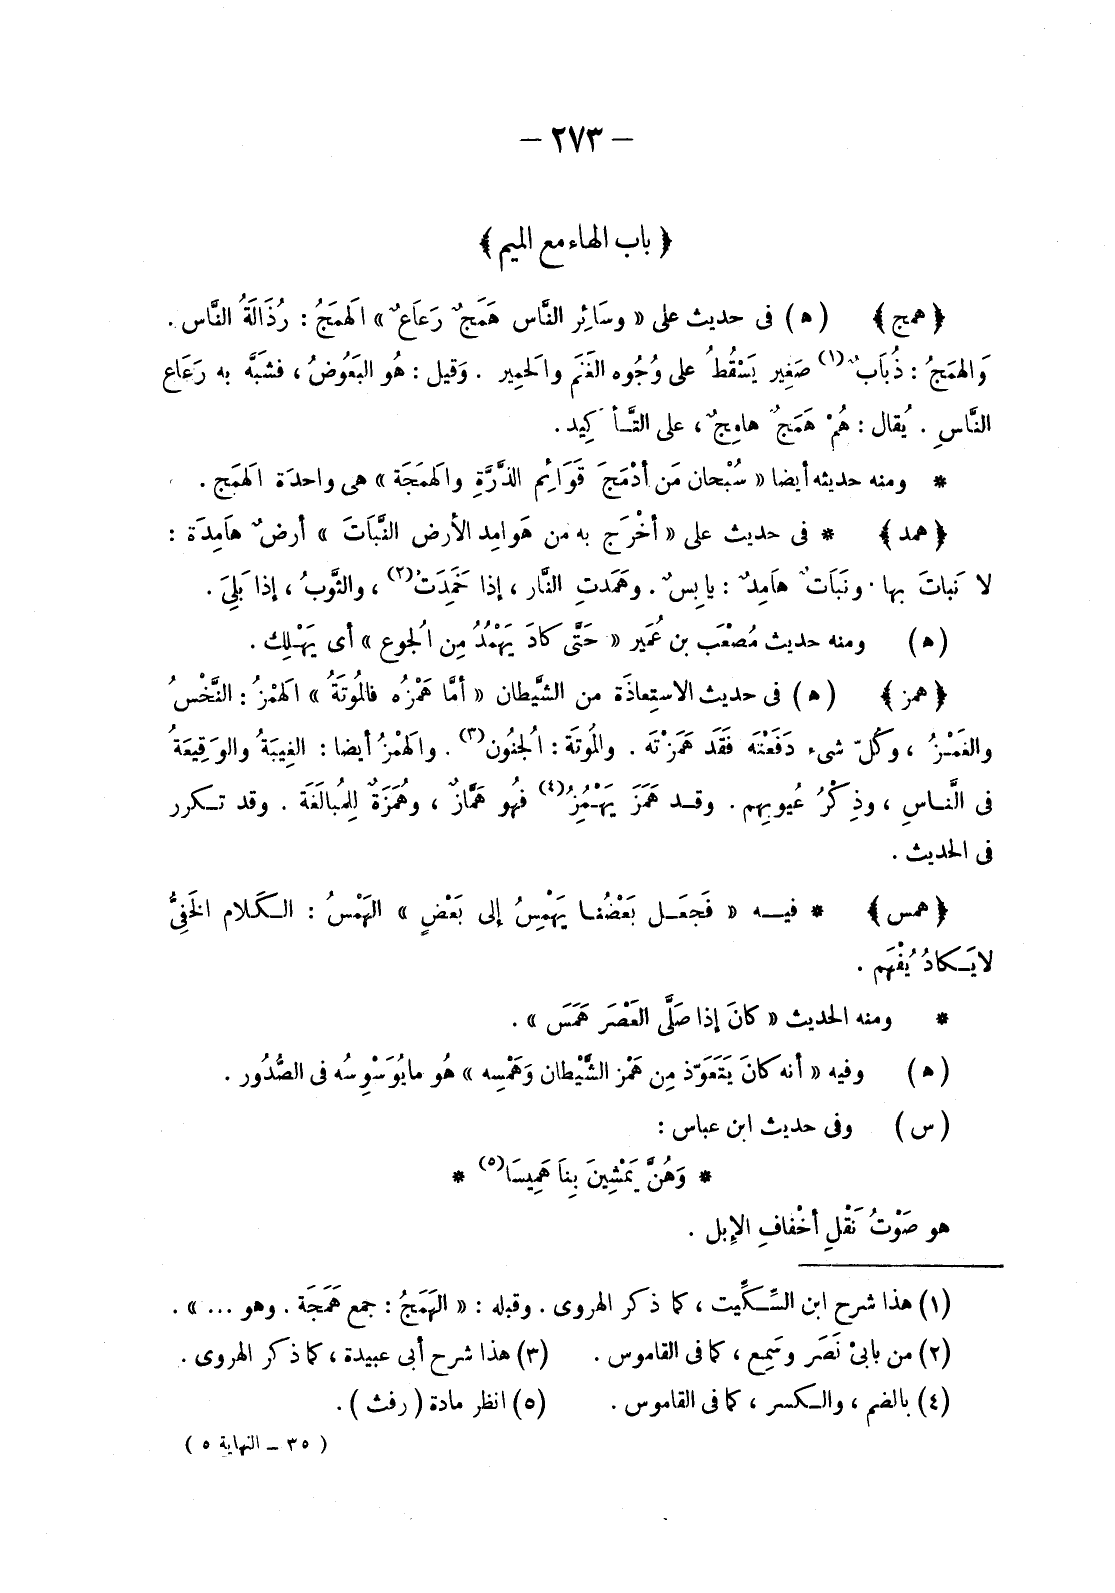 — ٢٧٣ —
﴿ باب الهاء مع الميم ﴾
﴿ همج ﴾ ( ه ) فى حديث على « وسَائِر النَّاس هَمَجٌ رَعَاعٌ » الهَمَجُ : رُذَالَةُ النَّاس .
وَالهمَجُ : ذُبَابٌ(١) صَغِير يَسْقُطُ على وُجُوه الغَنَم والحَمِير . وَقيل : هُو البَعُوضُ ، فشبَّه به رَعَاع
النَّاسِ . يُقال : هُمْ هَمَجٌ هامِجٌ ، على التَّأكِيد .
* ومنه حديثه أيضا « سُبْحان مَن أدْمَجَ قَوَائِم الذَّرَّةِ والهَمَجَة » هى واحدَة الهَمَج .
﴿ همد ﴾ * فى حديث على « أخْرَج به من هَوامِد الأرض النَّبَاتَ » أرضٌ هَامِدَة :
لا نَباتَ بها . ونَبَاتٌ هَامِدٌ : يابِسٌ . وهَمَدتِ النَّار ، إذا خَمَدِتْ(٢) ، والثَّوبُ ، إذا بَلِىَ .
( ه ) ومنه حديث مُصْعَب بن عُمَير « حَتَّى كادَ يَهْمُدُ مِن الجوع » أى يَهْلِك .
﴿ همز ﴾ ( ه ) فى حديث الاستِعاذَة من الشَّيطان « أمَّا هَمْزُه فالمُوتَةُ » الهَمْزُ : النَّخْسُ
والغَمْزُ ، وكُلّ شىء دَفَعْتَه فَقَد هَمَزتَه . والمُوتَة : الجنُون(٣) . والهَمْزُ أيضا : الغِيبَةُ والوَقِيعَةُ
فى النَّاسِ ، وذِكْرُ عُيوبِهم . وقد هَمَزَ يَهْمُِزُ(٤) فهُو هَمَّازٌ ، وهُمَزَةٌ لِلمُبالَغَة . وقد تكرر
فى الحديث .
﴿ همس ﴾ * فيه « فَجعَل بَعْضُنا يَهْمِسُ إلى بَعْضٍ » الهَمْسُ : الكَلام الخَفِىُّ
لايَكادُ يُفْهَم .
* ومنه الحديث « كانَ إذا صَلَّى العَصْرَ هَمَسَ » .
( ه ) وفيه « أنه كانَ يَتَعَوّذ مِن هَمْز الشَّيْطان وَهَمْسِه » هُو مايُوَسْوِسُه فى الصُّدُور .
( س ) وفى حديث ابن عباس :
* وَهُنَّ يَمْشِينَ بِنَا هَمِيسَا(٥) *
هو صَوْتُ نَقْلِ أخْفافِ الإبِل .
(١) هذا شرح ابن السِّكِّيت ، كما ذكر الهروى . وقبله : « الهَمَجُ : جمع هَمَجَة . وهو ... » .
(٢) من بابَىْ نَصَر وسَمِع ، كما فى القاموس . (٣) هذا شرح أبى عبيدة ، كما ذكر الهروى .
(٤) بالضم ، والكسر ، كما فى القاموس . (٥) انظر مادة ( رفث ) .
( ٣٥ ـ النهاية ٥ )